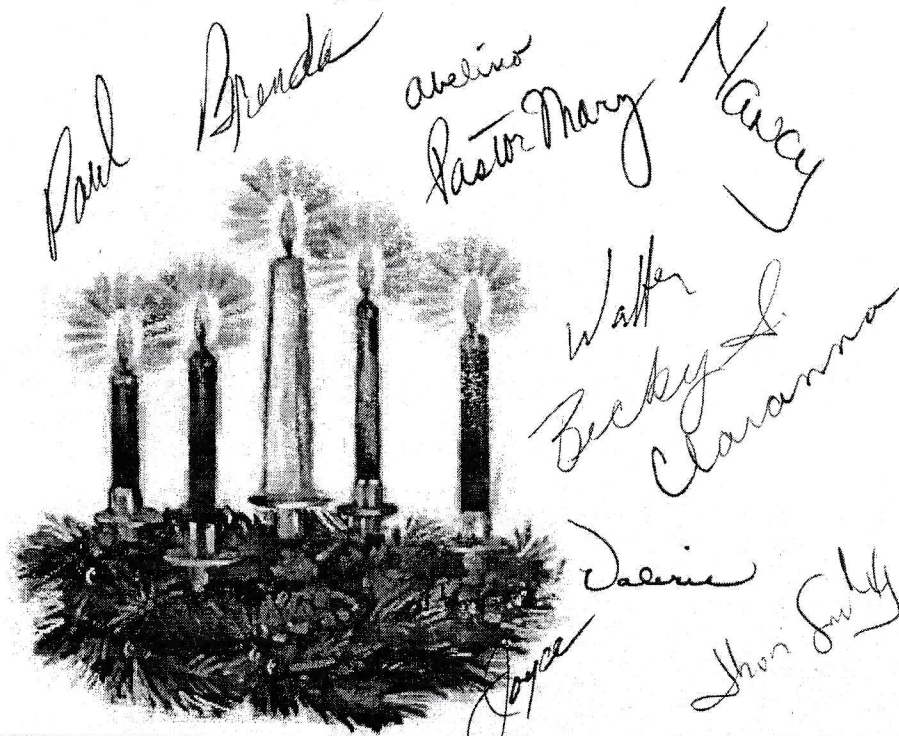 Paul
Brenda
Avelino
Pastor Mary
Nancy
Walter
Becky S.
Claranna
Valerie
Joyce